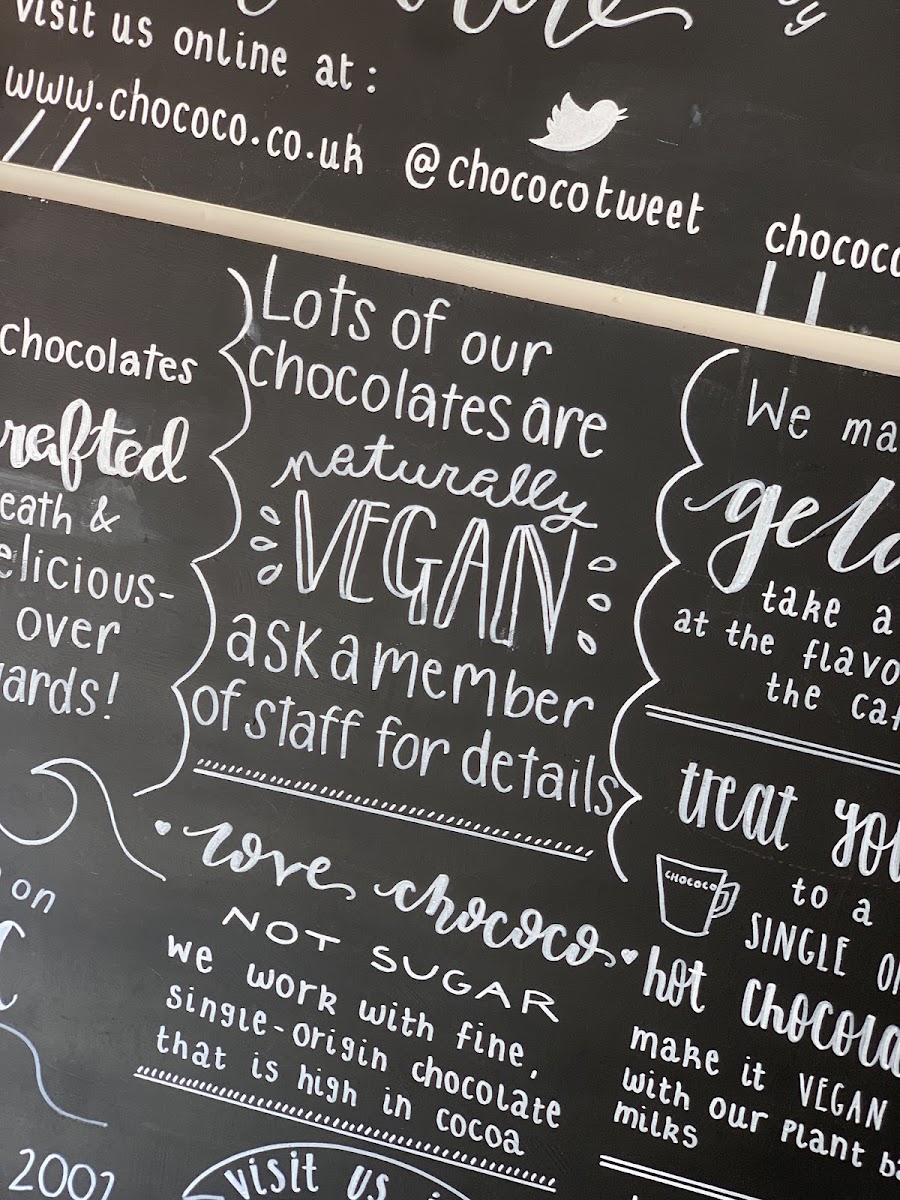 visit us online at:
www.chococo.co.uk
@chococotweet
chococo
chocolates
rafted
eath &
elicious-
over
ards!
on
2002
Lots of our
chocolates are
naturally
VEGAN
ask a member
of staff for details
love chococo
NOT SUGAR
we work with fine,
single-origin chocolate
that is high in cocoa
visit us
We ma
gela
take a
at the flavo
the caf
treat you
CHOCOCO
to a
SINGLE O
hot chocola
make it VEGAN
with our plant ba
milks